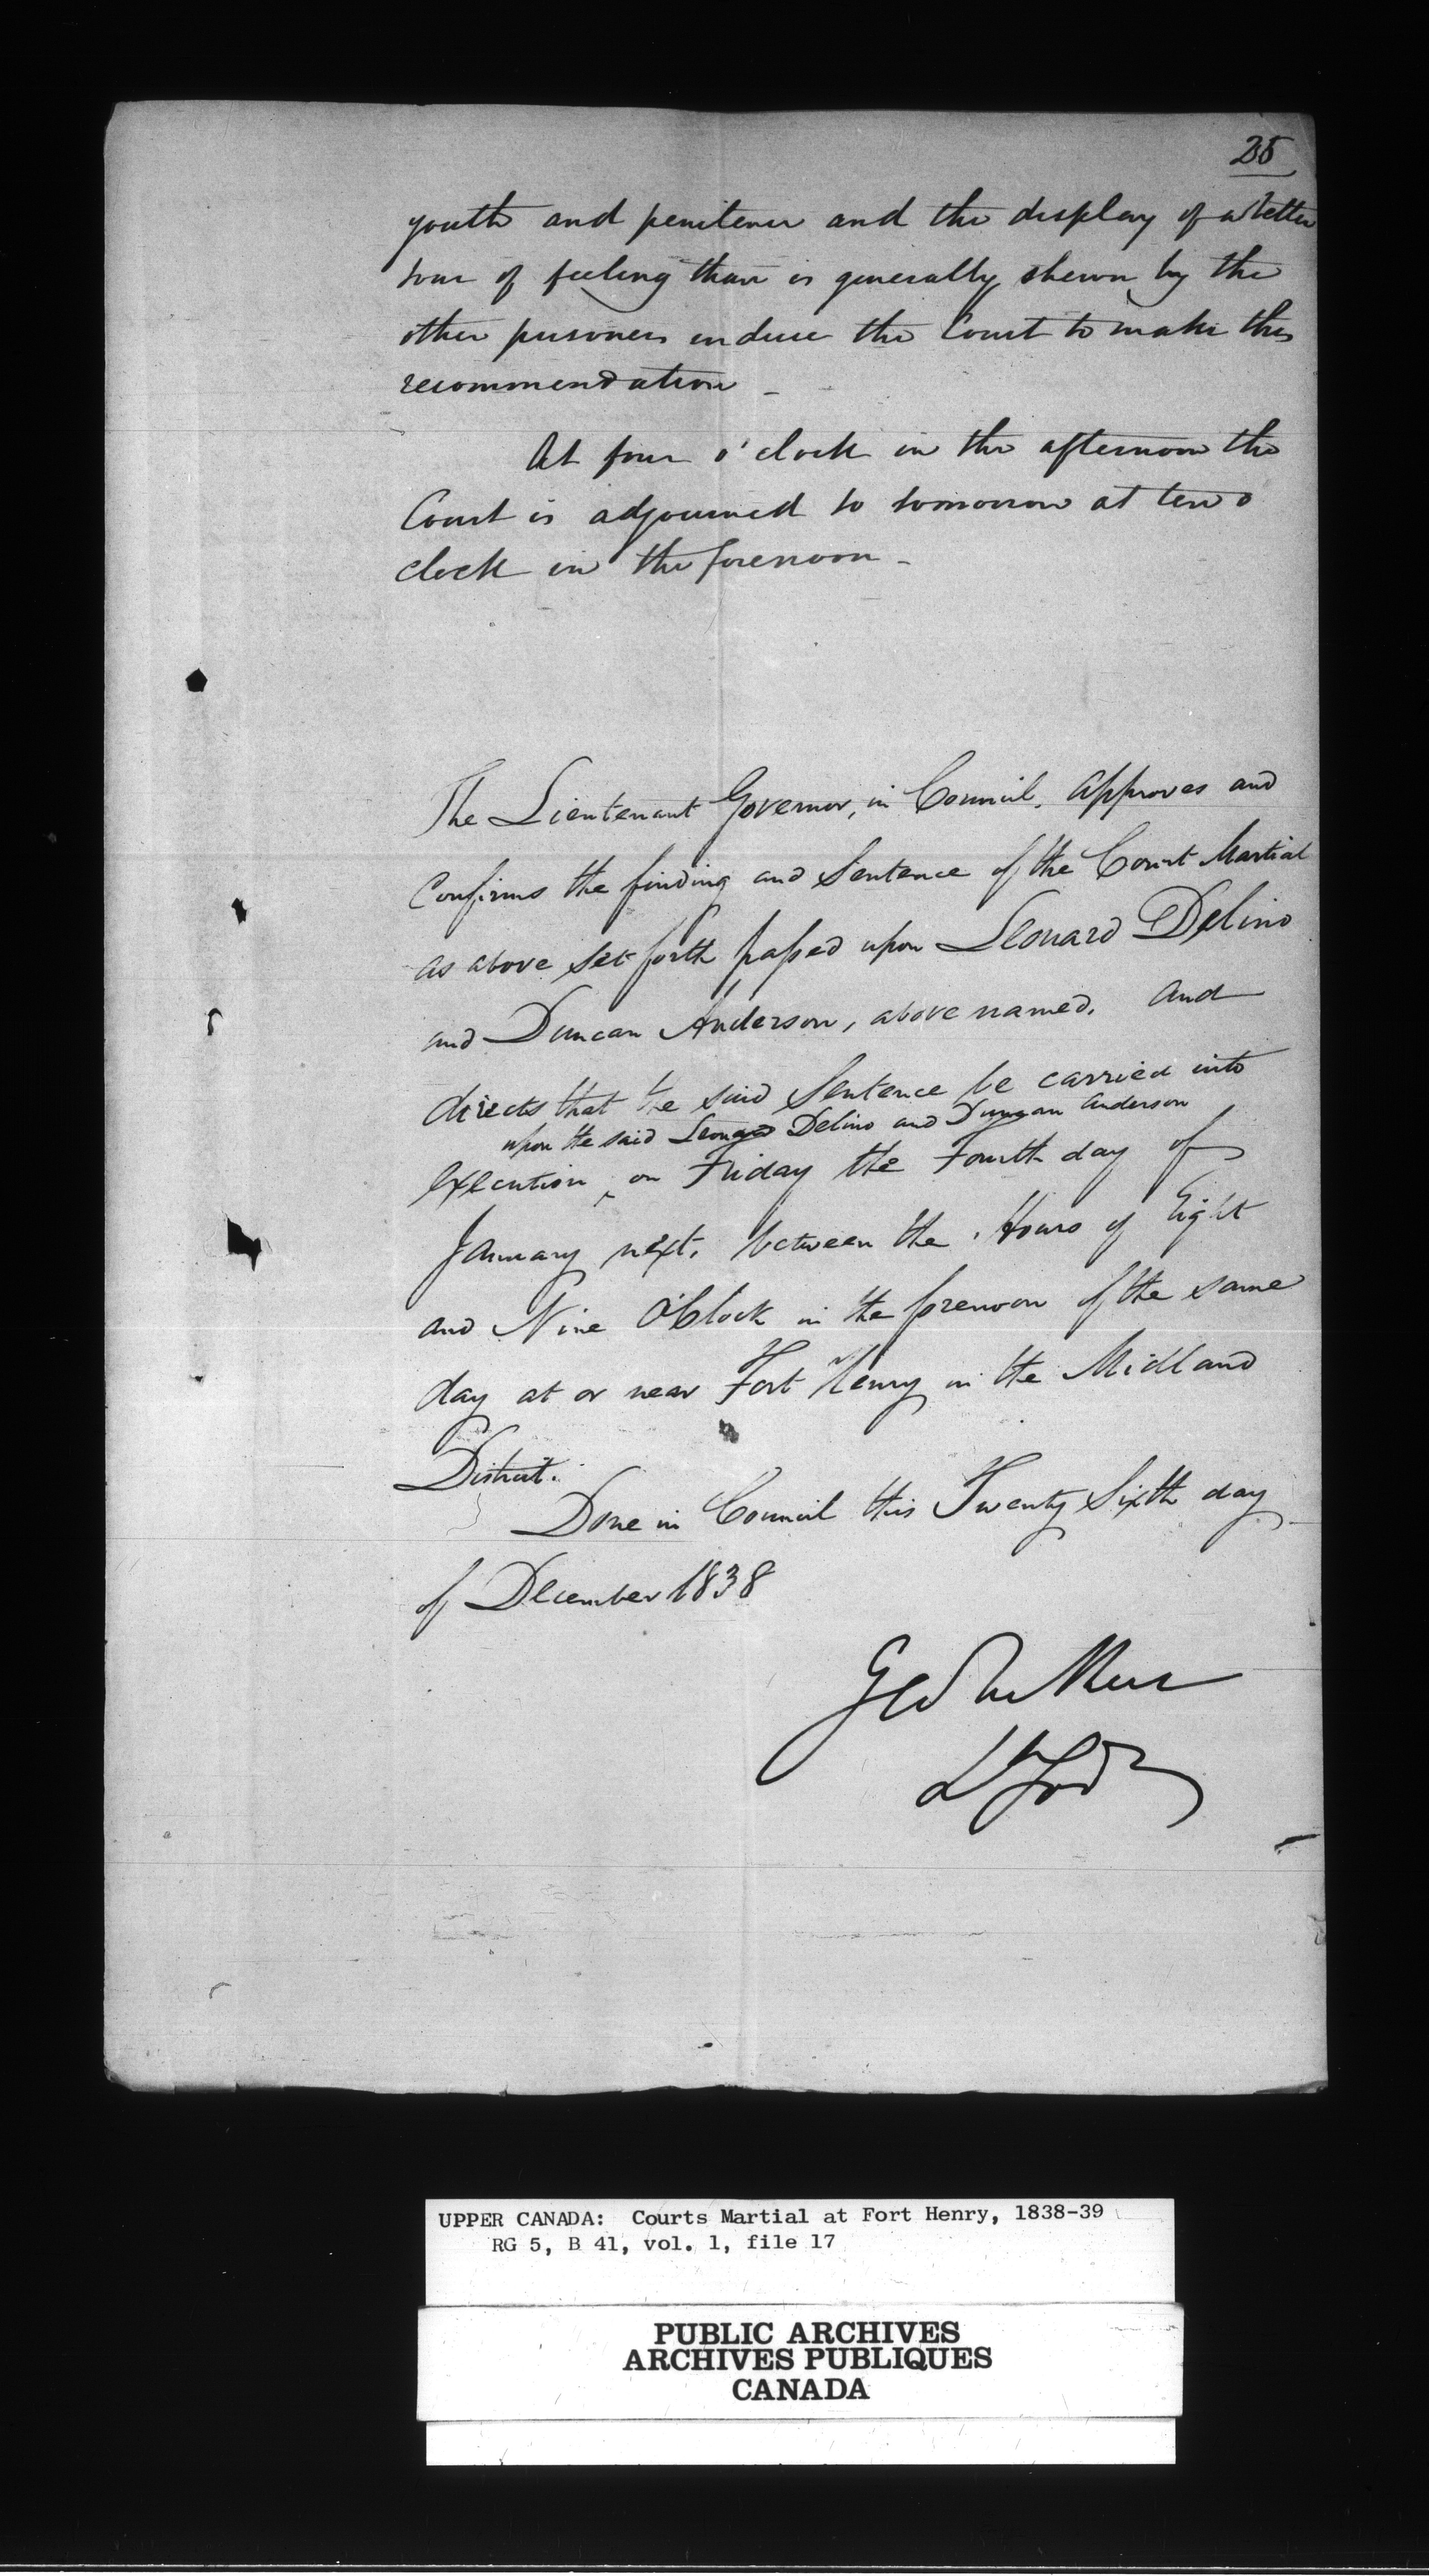 25
youth and penitence and the display of a better
tone of feeling than is generally shewn by the
other prisoners induce the Court to make this
recommendation -
At four o'clock in the afternoon the
Court is adjourned to tomorrow at ten o
clock in the forenoon -
The Lieutenant Governor, in Council, approves and
Confirms the finding and Sentence of the Court Martial
as above set forth passed upon Leonard Delino
and Duncan Anderson, above named. And
directs that the said Sentence be carried into
upon the said Leonard Delino and Duncan Anderson
execution ^ on Friday the Fourth day of
January next, between the Hours of Eight
and Nine O'Clock in the forenoon of the same
day at or near Fort Henry in the Midland
District.
Done in Council this Twenty Sixth day
of December 1838
Geo
UPPER CANADA: Courts Martial at Fort Henry, 1838-39
RG 5, B 41, vol. 1, file 17
PUBLIC ARCHIVES
ARCHIVES PUBLIQUES
CANADA